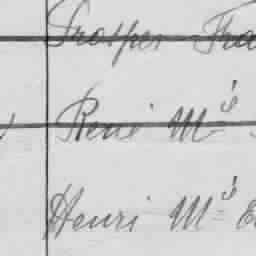 Prosper Fra
René M's
Henri M's E